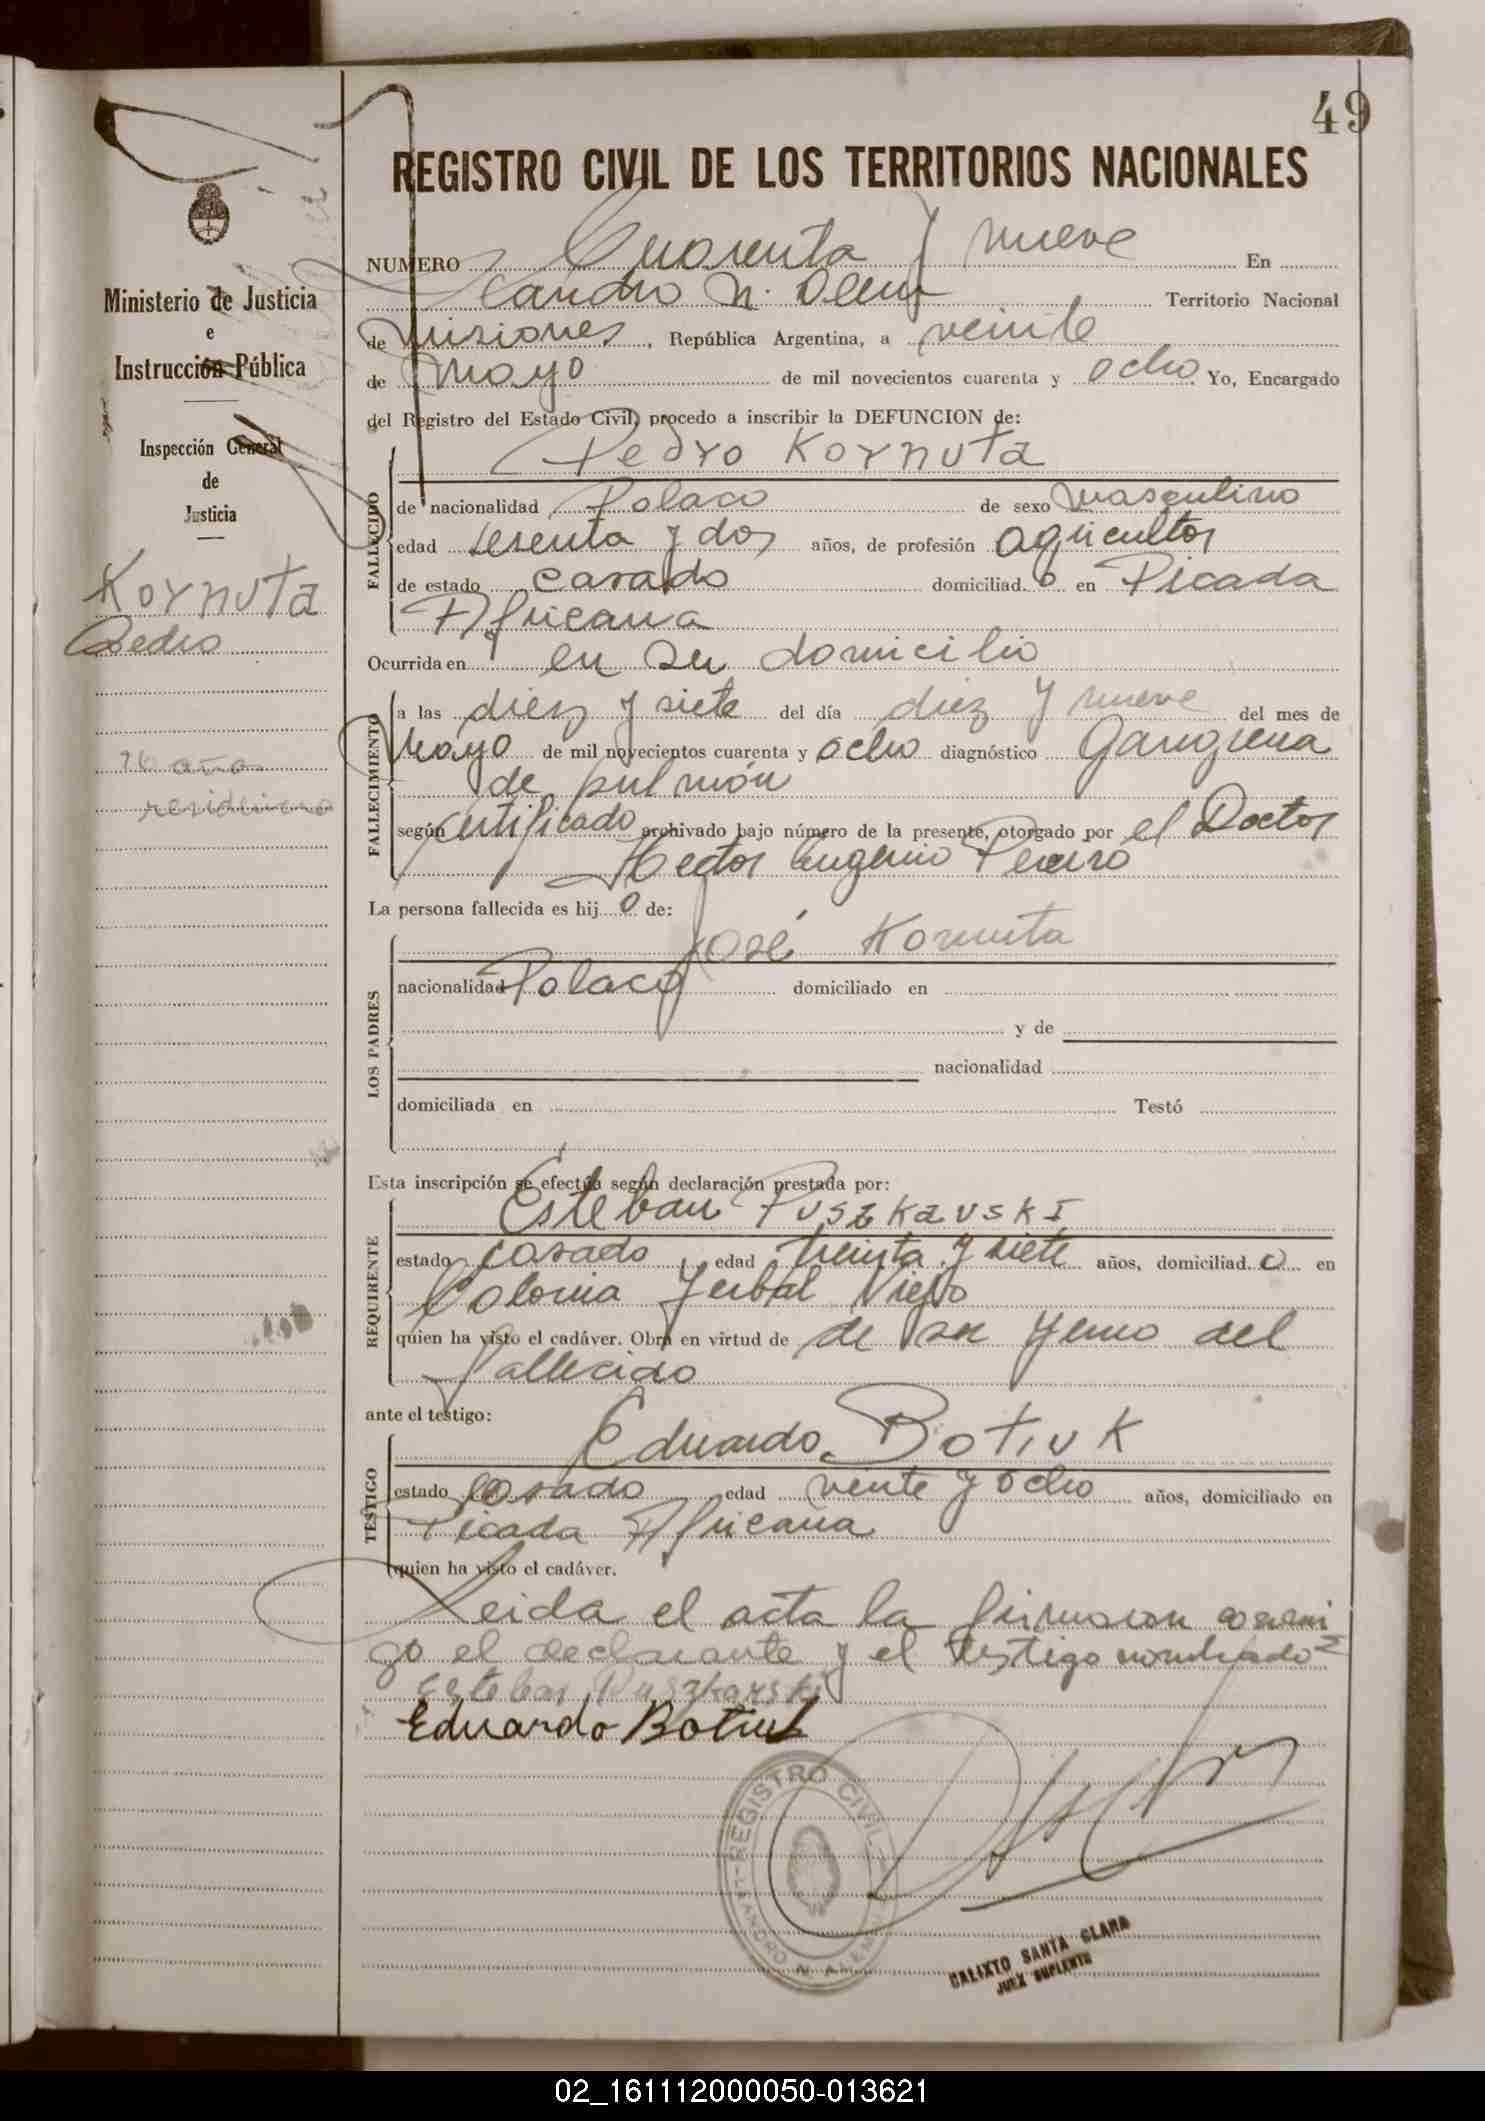 49
REGISTRO CIVIL DE LOS TERRITORIOS NACIONALES
Ministerio de Justicia
e
Instrucción Pública
Inspección General
de
Justicia
Kornuta
Pedro
años
NUMERO Cuarenta y nueve En
Leandro N. Alem Territorio Nacional
de Misiones, República Argentina, a veinte
de Mayo de mil novecientos cuarenta y ocho Yo, Encargado
del Registro del Estado Civil, procedo a inscribir la DEFUNCION de:
Pedro Kornuta
FALLECIDO
de nacionalidad Polaco de sexo masculino
edad sesenta y dos años, de profesión agricultor
de estado casado domiciliad o en Picada
Africana
Ocurrida en en su domicilio
FALLECIMIENTO
a las diez y siete del día diez y nueve del mes de
Mayo de mil novecientos cuarenta y ocho diagnóstico Gangrena
de pulmón
según certificado archivado bajo número de la presente, otorgado por el Doctor
Hector Eugenio
La persona fallecida es hij o de:
José Kornuta
LOS PADRES
nacionalidad Polaco domiciliado en
y de
nacionalidad
domiciliada en Testó
Esta inscripción se efectúa según declaración prestada por:
Esteban Puszkauski
REQUIRENTE
estado casado edad treinta y siete años, domiciliad o en
Colonia Yerbal Viejo
quien ha visto el cadáver. Obra en virtud de de ser yerno del
fallecido
ante el testigo:
Eduardo Botiuk
TESTIGO
estado casado edad veinte y ocho años, domiciliado en
Picada Africana
quien ha visto el cadáver.
Leida el acta la firmaron conmi
go el declarante y el testigo nombrado
Esteban Puszkarski
Eduardo Botiuk
REGISTRO CIVIL
LEANDRO N. ALEM
CALIXTO SANTA CLARA
JUEZ SUPLENTE
02_161112000050-013621